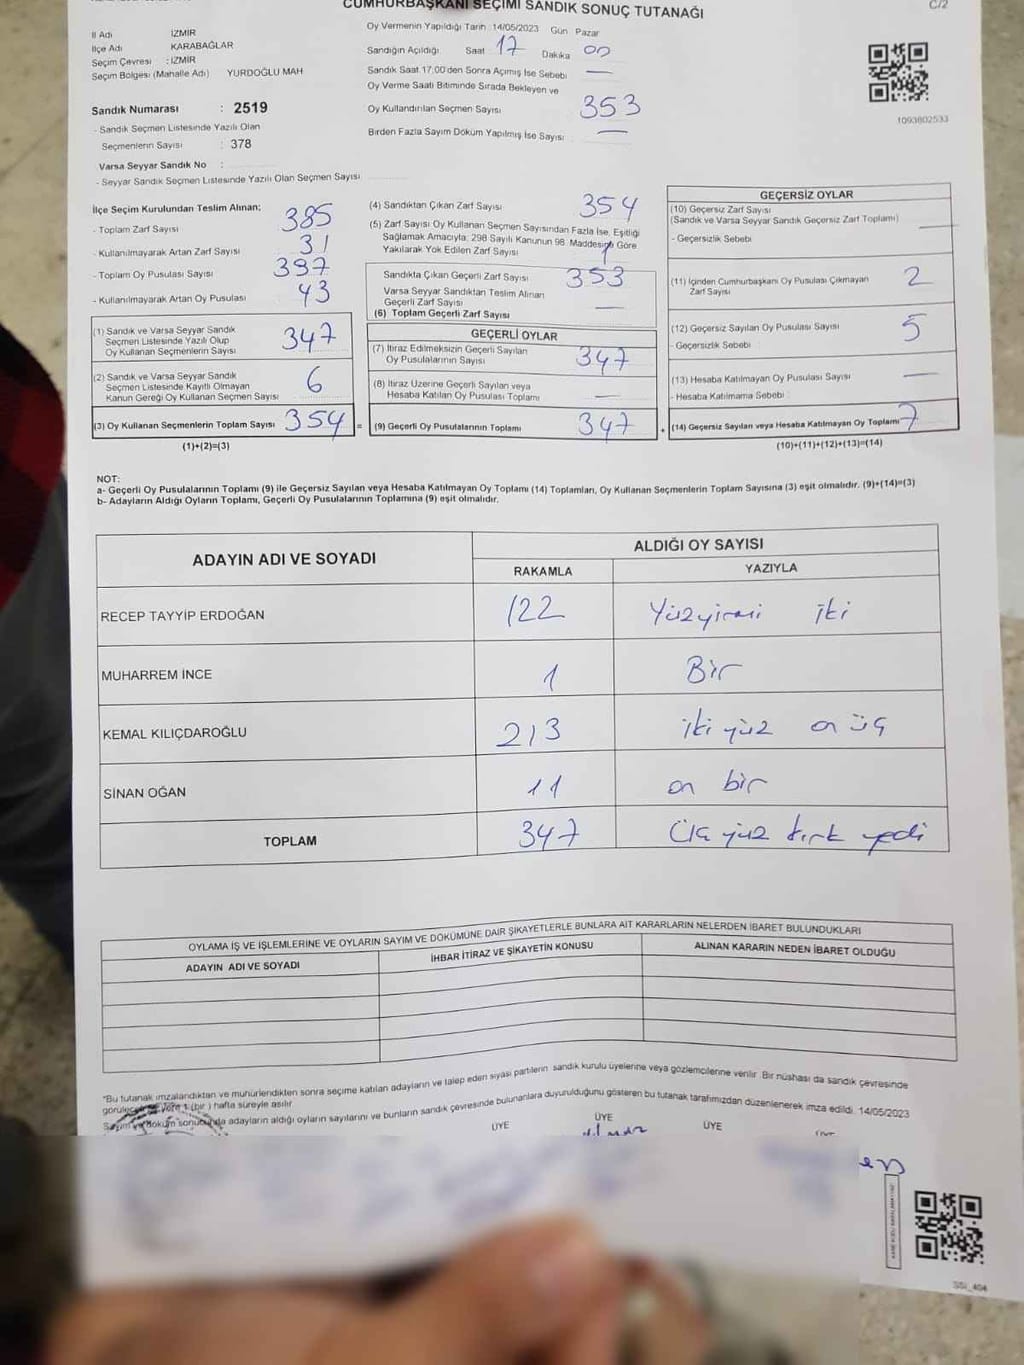 CUMHURBAŞKANI SEÇİMİ SANDIK SONUÇ TUTANAĞI
C/2
İl Adı İZMİR
İlçe Adı KARABAĞLAR
Seçim Çevresi : İZMİR
Seçim Bölgesi (Mahalle Adı) YURDOĞLU MAH
Sandık Numarası : 2519
- Sandık Seçmen Listesinde Yazılı Olan
Seçmenlerin Sayısı : 378
Varsa Seyyar Sandık No :
- Seyyar Sandık Seçmen Listesinde Yazılı Olan Seçmen Sayısı
Oy Vermenin Yapıldığı Tarih : 14/05/2023 Gün Pazar
Sandığın Açıldığı Saat 17 Dakika 00
Sandık Saat 17.00'den Sonra Açımış İse Sebebi —
Oy Verme Saati Bitiminde Sırada Bekleyen ve
Oy Kullandırılan Seçmen Sayısı 353
Birden Fazla Sayım Döküm Yapılmış İse Sayısı —
1093802533
İlçe Seçim Kurulundan Teslim Alınan;
- Toplam Zarf Sayısı 385
- Kullanılmayarak Artan Zarf Sayısı 31
- Toplam Oy Pusulası Sayısı 397
- Kullanılmayarak Artan Oy Pusulası 43
(1) Sandık ve Varsa Seyyar Sandık
Seçmen Listesinde Yazılı Olup
Oy Kullanan Seçmenlerin Sayısı 347
(2) Sandık ve Varsa Seyyar Sandık
Seçmen Listesinde Kayıtlı Olmayan
Kanun Gereği Oy Kullanan Seçmen Sayısı 6
(3) Oy Kullanan Seçmenlerin Toplam Sayısı 354 =
(1)+(2)=(3)
(4) Sandıktan Çıkan Zarf Sayısı 354
(5) Zarf Sayısı Oy Kullanan Seçmen Sayısından Fazla İse, Eşitliği
Sağlamak Amacıyla; 298 Sayılı Kanunun 98. Maddesine Göre
Yakılarak Yok Edilen Zarf Sayısı 1
Sandıkta Çıkan Geçerli Zarf Sayısı 353
Varsa Seyyar Sandıktan Teslim Alınan
Geçerli Zarf Sayısı —
(6) Toplam Geçerli Zarf Sayısı
GEÇERLİ OYLAR
(7) İtiraz Edilmeksizin Geçerli Sayılan
Oy Pusulalarının Sayısı 347
(8) İtiraz Üzerine Geçerli Sayılan veya
Hesaba Katılan Oy Pusulası Toplamı —
(9) Geçerli Oy Pusulalarının Toplamı 347 +
GEÇERSİZ OYLAR
(10) Geçersiz Zarf Sayısı
(Sandık ve Varsa Seyyar Sandık Geçersiz Zarf Toplamı) —
- Geçersizlik Sebebi
(11) İçinden Cumhurbaşkanı Oy Pusulası Çıkmayan
Zarf Sayısı 2
(12) Geçersiz Sayılan Oy Pusulası Sayısı 5
- Geçersizlik Sebebi
(13) Hesaba Katılmayan Oy Pusulası Sayısı —
- Hesaba Katılmama Sebebi
(14) Geçersiz Sayılan veya Hesaba Katılmayan Oy Toplamı 7
(10)+(11)+(12)+(13)=(14)
NOT:
a- Geçerli Oy Pusulalarının Toplamı (9) ile Geçersiz Sayılan veya Hesaba Katılmayan Oy Toplamı (14) Toplamları, Oy Kullanan Seçmenlerin Toplam Sayısına (3) eşit olmalıdır. (9)+(14)=(3)
b- Adayların Aldığı Oyların Toplamı, Geçerli Oy Pusulalarının Toplamına (9) eşit olmalıdır.
ADAYIN ADI VE SOYADI ALDIĞI OY SAYISI
RAKAMLA YAZIYLA
RECEP TAYYİP ERDOĞAN 122 Yüzyirmi iki
MUHARREM İNCE 1 Bir
KEMAL KILIÇDAROĞLU 213 iki yüz on üç
SİNAN OĞAN 11 on bir
TOPLAM 347 Üç yüz kırk yedi
OYLAMA İŞ VE İŞLEMLERİNE VE OYLARIN SAYIM VE DÖKÜMÜNE DAİR ŞİKAYETLERLE BUNLARA AİT KARARLARIN NELERDEN İBARET BULUNDUKLARI
ADAYIN ADI VE SOYADI İHBAR İTİRAZ VE ŞİKAYETİN KONUSU ALINAN KARARIN NEDEN İBARET OLDUĞU
*Bu tutanak imzalandıktan ve mühürlendikten sonra seçime katılan adayların ve talep eden siyasi partilerin sandık kurulu üyelerine veya gözlemcilerine verilir. Bir nüshası da sandık çevresinde
görülecek yere 1 (bir) hafta süreyle asılır
Sayım ve döküm sonucunda adayların aldığı oyların sayılarını ve bunların sandık çevresinde bulunanlara duyurulduğunu gösteren bu tutanak tarafımızdan düzenlenerek imza edildi. 14/05/2023
ÜYE ÜYE ÜYE
SSİ_404